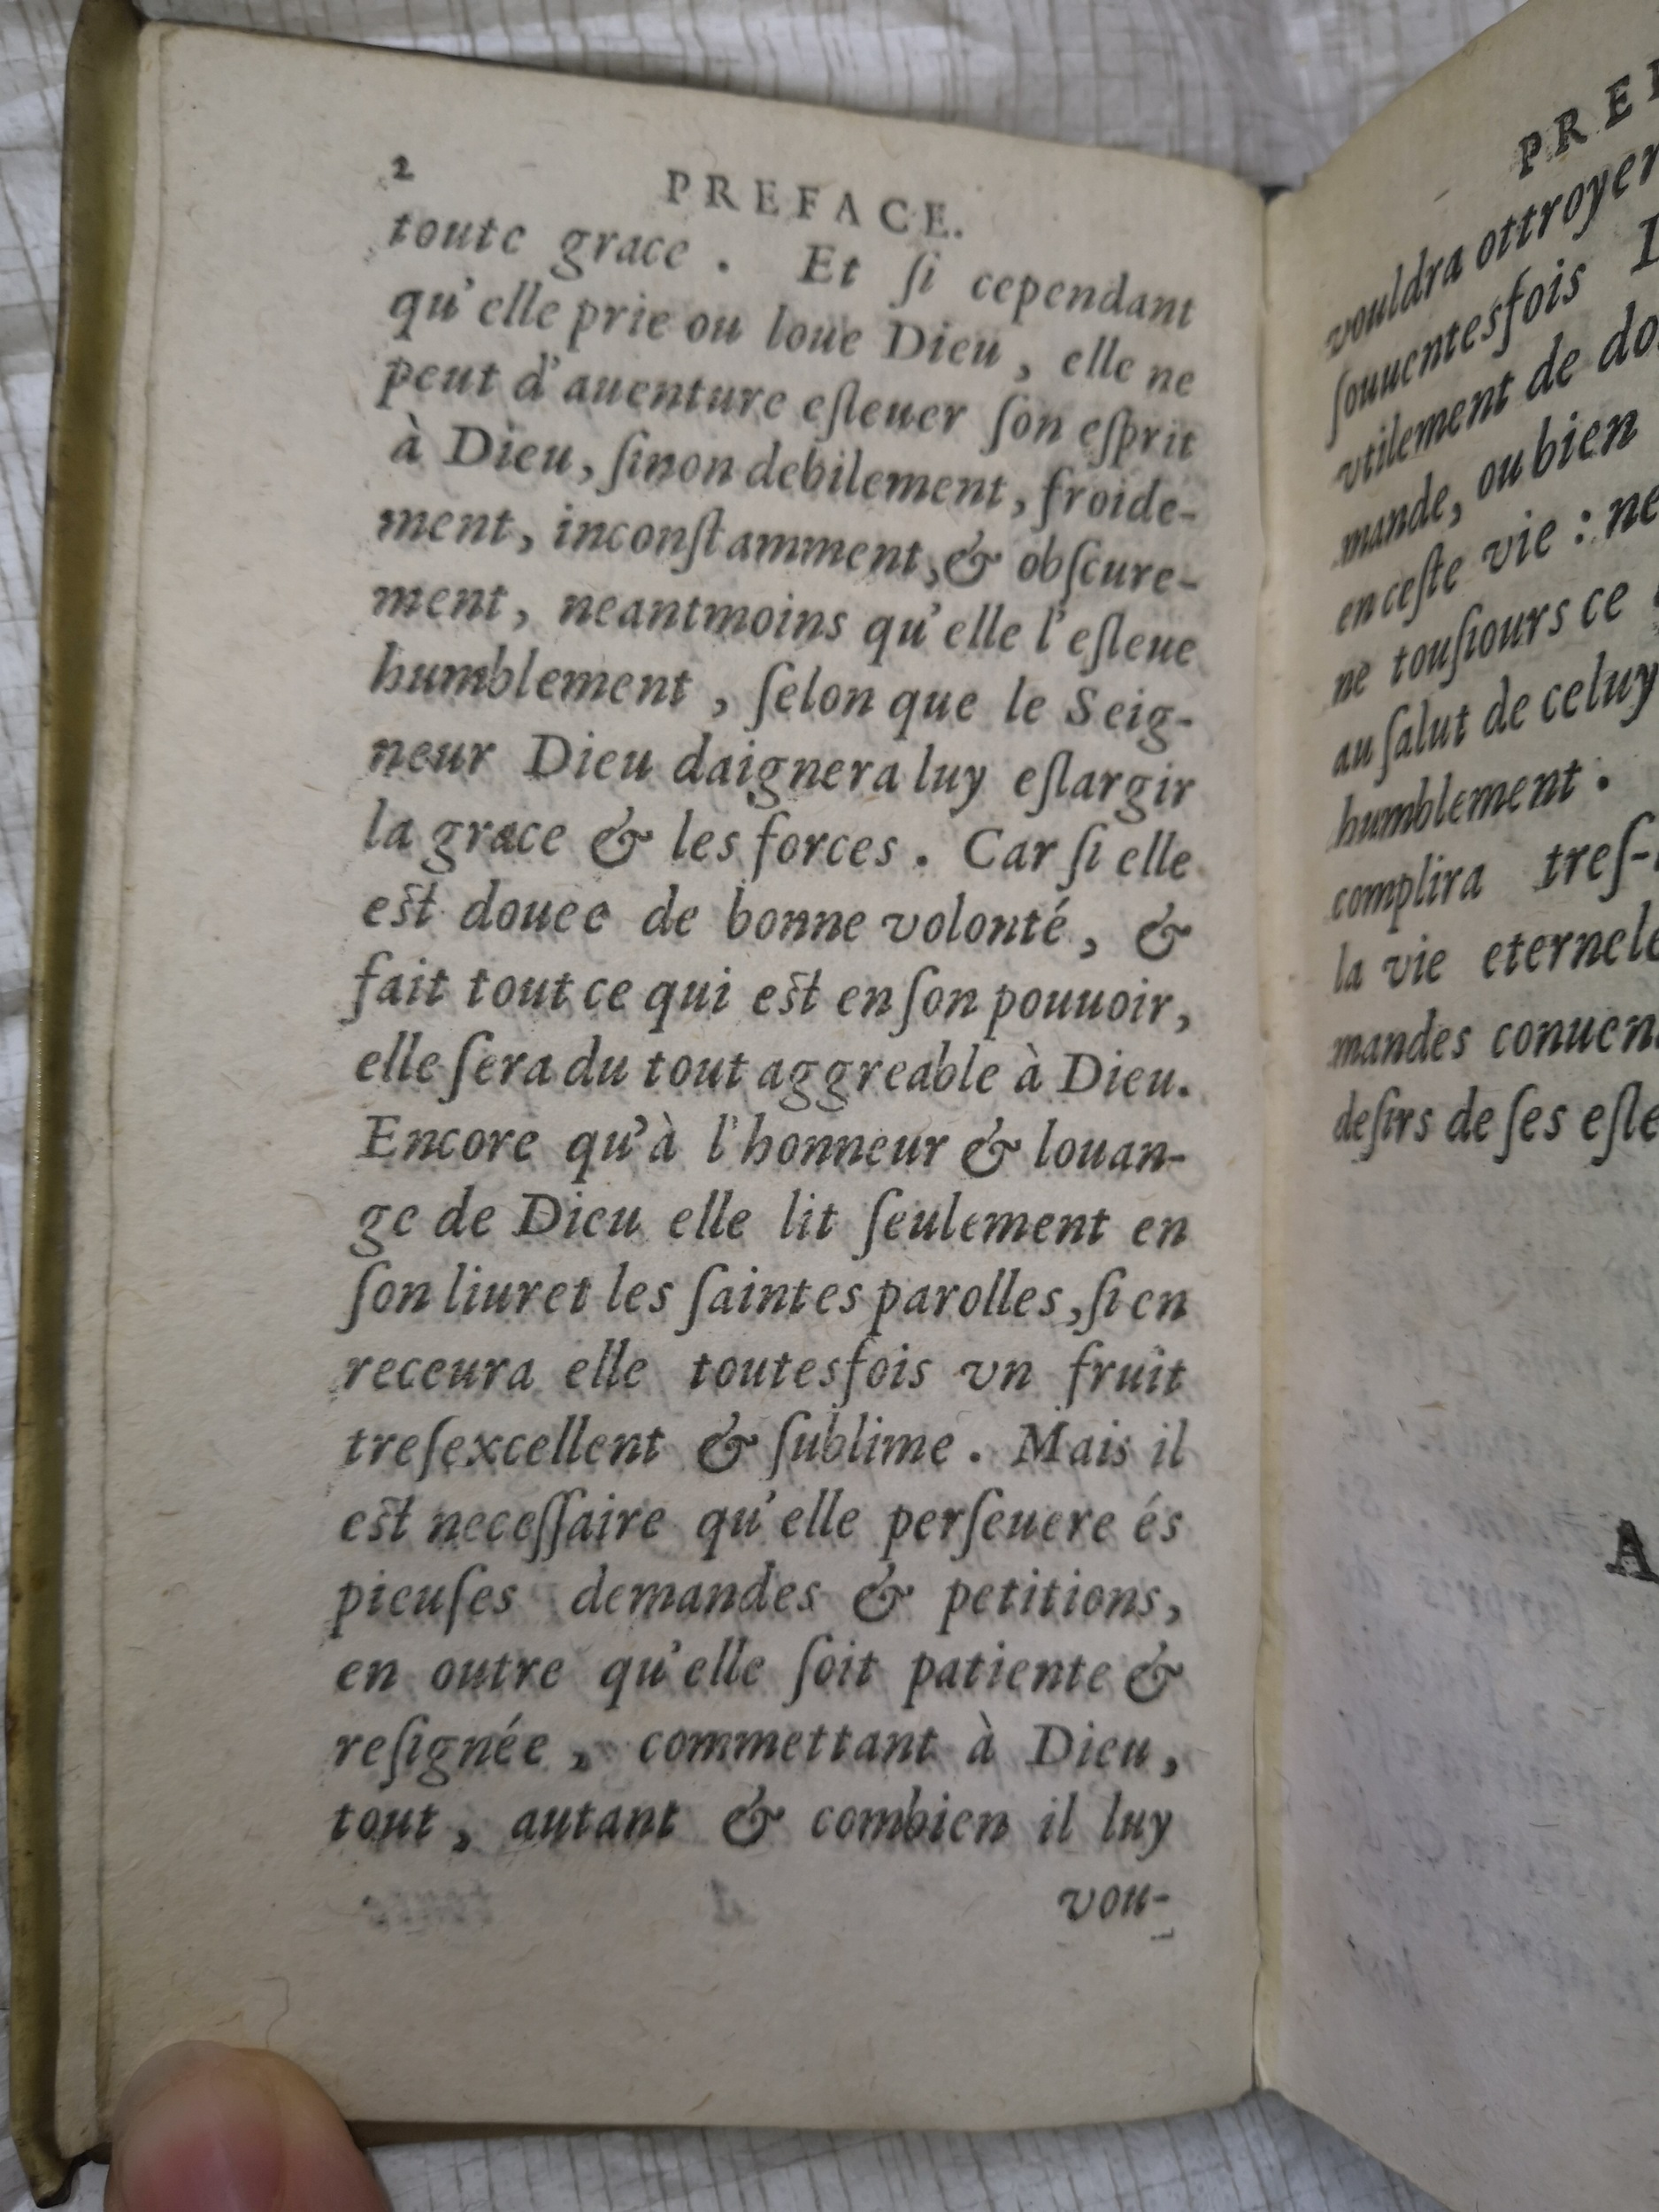 2 PREFACE.
toute grace . Et ſi cependant
qu'elle prie ou loue Dieu, elle ne
peut d'auenture eſleuer ſon eſprit
à Dieu, ſinon debilement, froide-
ment, inconſtamment, & obſcure-
ment, neantmoins qu'elle l'eſleue
humblement, ſelon que le Seig-
neur Dieu daignera luy eſlargir
la grace & les forces. Car ſi elle
eſt douee de bonne volonté, &
fait tout ce qui eſt en ſon pouuoir,
elle ſera du tout aggreable à Dieu.
Encore qu'à l'honneur & louan-
ge de Dieu elle lit ſeulement en
ſon liuret les ſaintes parolles, ſi en
receura elle toutesfois vn fruit
treſexcellent & ſublime. Mais il
eſt neceſſaire qu'elle perſeuere és
pieuſes demandes & petitions,
en outre qu'elle ſoit patiente &
reſignée, commettant à Dieu,
tout, autant & combien il luy
vou-
PRE
vouldra ottroyer
ſouuentesfois
vtilement de
mande, ou bien
en ceſte vie : ne
ne touſiours ce
au ſalut de celuy
humblement.
complira treſ-
la vie
mandes
deſirs de ſes
A